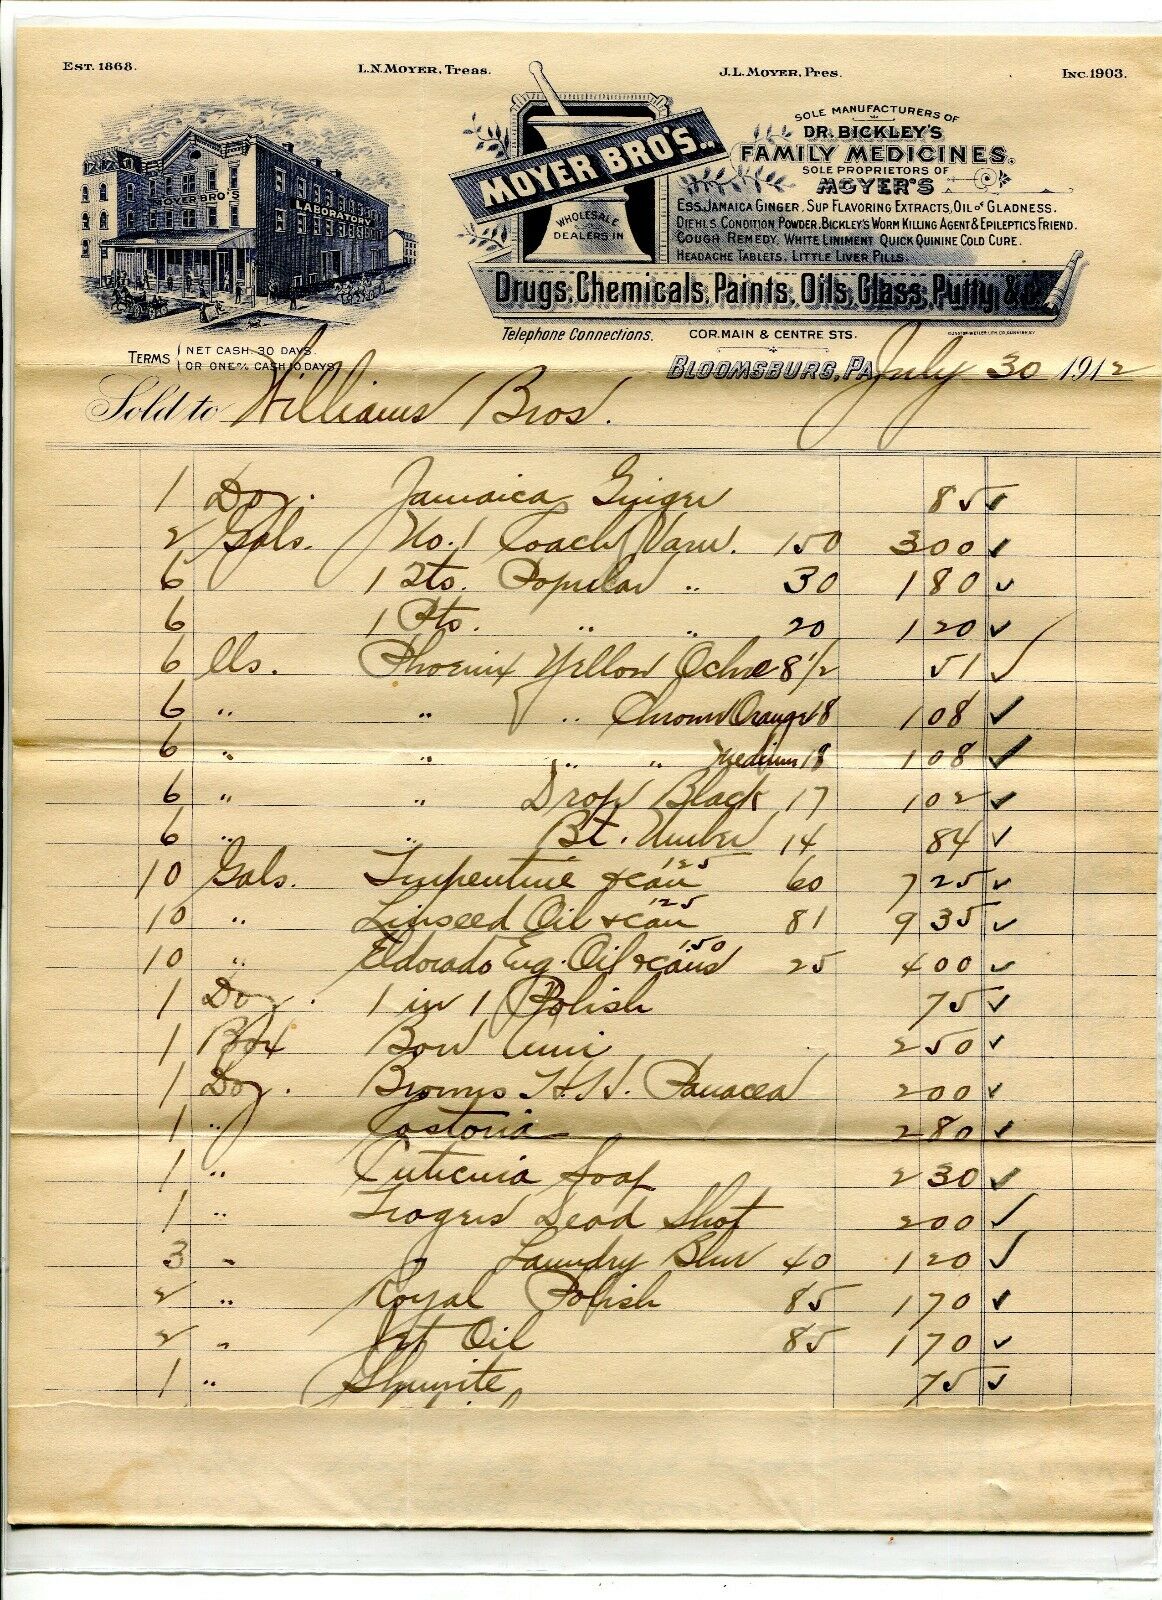 EST. 1868.
L.N. MOYER, Treas.
J.L. MOYER, Pres.
INC. 1903.
MOYER BRO'S
LABORATORY
MOYER BRO'S..
WHOLESALE
DEALERS IN
SOLE MANUFACTURERS OF
DR. BICKLEY'S
FAMILY MEDICINES.
SOLE PROPRIETORS OF
MOYER'S
ESS. JAMAICA GINGER, SUP FLAVORING EXTRACTS, OIL OF GLADNESS.
DIEHL'S CONDITION POWDER. BICKLEY'S WORM KILLING AGENT & EPILEPTICS FRIEND.
COUGH REMEDY, WHITE LINIMENT QUICK QUININE COLD CURE.
HEADACHE TABLETS, LITTLE LIVER PILLS.
Drugs, Chemicals, Paints, Oils, Glass, Putty, &c.
Telephone Connections.
COR. MAIN & CENTRE STS.
TERMS NET CASH 30 DAYS.
OR ONE % CASH 10 DAYS
BLOOMSBURG, PA. July 30 1912
Sold to Williams Bros.
1 Doz. Jamaica Ginger 85 ✓
2 Gals. No. 1 Coach Varn. 150 3 00 ✓
6 1 Qts. Popular " 30 1 80 ✓
6 1 Pts. " " 20 1 20 ✓
6 lbs. Phoenix Yellow Ochre 8 1/2 51 ✓
6 " " " Chrome Orange 18 1 08 ✓
6 " " " " Medium 18 1 08 ✓
6 " " Drop Black 17 1 02 ✓
6 " " Bt. Umber 14 84 ✓
10 Gals. Turpentine & can 1 25 60 7 25 ✓
10 " Linseed Oil & can 1 25 81 9 35 ✓
10 " Eldorado Eng. Oil & cans 1 50 25 4 00 ✓
1 Doz. 1 in 1 Polish 75 ✓
1 Box Bon Ami 2 50 ✓
1 Doz. Browns H.H. Panacea 2 00 ✓
1 " Castoria 2 80 ✓
1 " Cuticura Soap 2 30 ✓
1 " Dead Shot 2 00 ✓
3 " " Laundry Blue 40 1 20 ✓
2 " Royal Polish 85 1 70 ✓
2 " Jet Oil 85 1 70 ✓
1 " 75 ✓